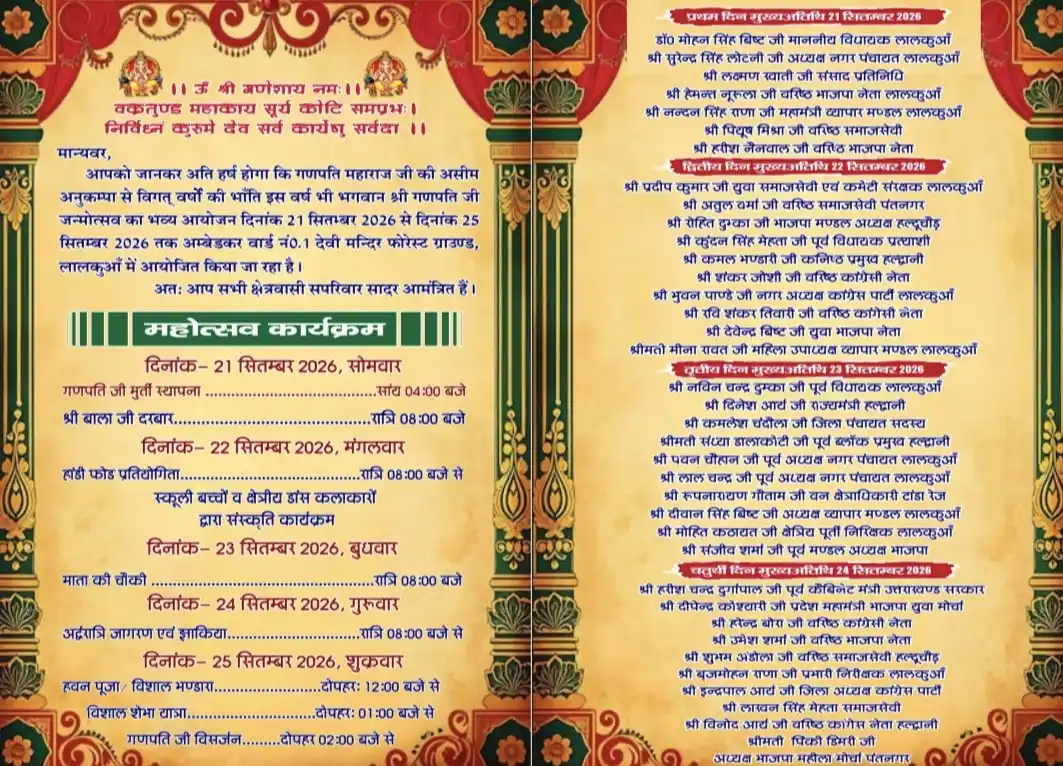 ।। ऊँ श्री गणेशाय नमः ।।
वक्रतुण्ड महाकाय सूर्य कोटि समप्रभः।
निर्विध्नं कुरुमे देव सर्व कार्येषु सर्वदा ।।
मान्यवर,
आपको जानकर अति हर्ष होगा कि गणपति महाराज जी की असीम
अनुकम्पा से विगत् वर्षो की भाँति इस वर्ष भी भगवान श्री गणपति जी
जन्मोत्सव का भव्य आयोजन दिनांक 21 सितम्बर 2026 से दिनांक 25
सितम्बर 2026 तक अम्बेडकर वार्ड नं0.1 देवी मन्दिर फोरेस्ट ग्राउण्ड,
लालकुआँ में आयोजित किया जा रहा है।
अतः आप सभी क्षेत्रवासी सपरिवार सादर आमंत्रित हैं।
महोत्सव कार्यक्रम
दिनांक– 21 सितम्बर 2026, सोमवार
गणपति जी मुर्ती स्थापना ........................................सांय 04:00 बजे
श्री बाला जी दरबार................................................रात्रि 08:00 बजे
दिनांक– 22 सितम्बर 2026, मंगलवार
हांडी फोड प्रतियोगिता..........................................रात्रि 08:00 बजे से
स्कूली बच्चों व क्षेत्रीय डांस कलाकारों
द्वारा संस्कृति कार्यक्रम
दिनांक– 23 सितम्बर 2026, बुधवार
माता की चौकी ....................................................रात्रि 08:00 बजे
दिनांक– 24 सितम्बर 2026, गुरूवार
अर्द्धरात्रि जागरण एवं झाकिया...............................रात्रि 08:00 बजे से
दिनांक– 25 सितम्बर 2026, शुक्रवार
हवन पूजा/ विशाल भण्डारा.........................दोपहरः 12:00 बजे से
विशाल शेभा यात्रा.............................दोपहरः 01:00 बजे से
गणपति जी विसर्जन.........दोपहर 02:00 बजे से
प्रथम दिन मुख्यअतिथि 21 सितम्बर 2026
डॉ0 मोहन सिंह बिष्ट जी माननीय विधायक लालकुआँ
श्री सुरेन्द्र सिंह लोटनी जी अध्यक्ष नगर पंचायत लालकुआँ
श्री लक्ष्मण खाती जी संसाद प्रतिनिधि
श्री हेमन्त नरूला जी वरिष्ठ भाजपा नेता लालकुआँ
श्री नन्दन सिंह राणा जी महामंत्री व्यापार मण्डल लालकुआँ
श्री पियूष मिश्रा जी वरिष्ठ समाजसेवी
श्री हरीश नैनवाल जी वरिष्ठ भाजपा नेता
द्वितीय दिन मुख्यअतिथि 22 सितम्बर 2026
श्री प्रदीप कुमार जी युवा समाजसेवी एवं कमेटी संरक्षक लालकुआँ
श्री अतुल वर्मा जी वरिष्ठ समाजसेवी पंतनगर
श्री रोहित दुम्का जी भाजपा मण्डल अध्यक्ष हल्दूचौड़
श्री कुंदन सिंह मेहता जी पूर्व विधायक प्रत्याशी
श्री कमल भण्डारी जी कनिष्ठ प्रमुख हल्द्वानी
श्री शंकर जोशी जी वरिष्ठ कांग्रेसी नेता
श्री भुवन पाण्डे जी नगर अध्यक्ष कांग्रेस पार्टी लालकुआँ
श्री रवि शंकर तिवारी जी वरिष्ठ कांगेसी नेता
श्री देवेन्द्र बिष्ट जी युवा भाजपा नेता
श्रीमती मीना रावत जी महिला उपाध्यक्ष व्यापार मण्डल लालकुआँ
तृतीय दिन मुख्यअतिथि 23 सितम्बर 2026
श्री नविन चन्द्र दुम्का जी पूर्व विधायक लालकुआँ
श्री दिनेश आर्य जी राज्यमंत्री हल्द्वानी
श्री कमलेश चंदौला जी जिला पंचायत सदस्य
श्रीमती संध्या डालाकोटी जी पूर्व ब्लॉक प्रमुख हल्द्वानी
श्री पवन चौहान जी पूर्व अध्यक्ष नगर पंचायत लालकुआँ
श्री लाल चन्द्र जी पूर्व अध्यक्ष नगर पंचायत लालकुआँ
श्री रूपनारायण गौताम जी वन क्षेत्राधिकारी टांडा रेंज
श्री दीवान सिंह बिष्ट जी अध्यक्ष व्यापार मण्डल लालकुआँ
श्री मोहित कठायत जी क्षेत्रिय पूर्ती निरिक्षक लालकुआँ
श्री संजीव शर्मा जी पूर्व मण्डल अध्यक्ष भाजपा
चतुर्थी दिन मुख्यअतिथि 24 सितम्बर 2026
श्री हरीश चन्द्र दुर्गापाल जी पूर्व कैबिनेट मंत्री उत्तराखण्ड सरकार
श्री दीपेन्द्र कोश्यारी जी प्रदेश महामंत्री भाजपा युवा मोर्चा
श्री हरेन्द्र बोरा जी वरिष्ठ कांग्रेसी नेता
श्री उमेश शर्मा जी वरिष्ठ भाजपा नेता
श्री शुभम अंडोला जी वरिष्ठ समाजसेवी हल्दूचौड़
श्री बृजमोहन राणा जी प्रभारी निरीक्षक लालकुआँ
श्री इन्द्रपाल आर्य जी जिला अध्यक्ष कांग्रेस पार्टी
श्री लाखन सिंह मेहता समाजसेवी
श्री विनोद आर्य जी वरिष्ठ कांगेस नेता हल्द्वानी
श्रीमती पिंकी डिमरी जी
अध्यक्ष भाजपा महीला मोर्चा पंतनगर